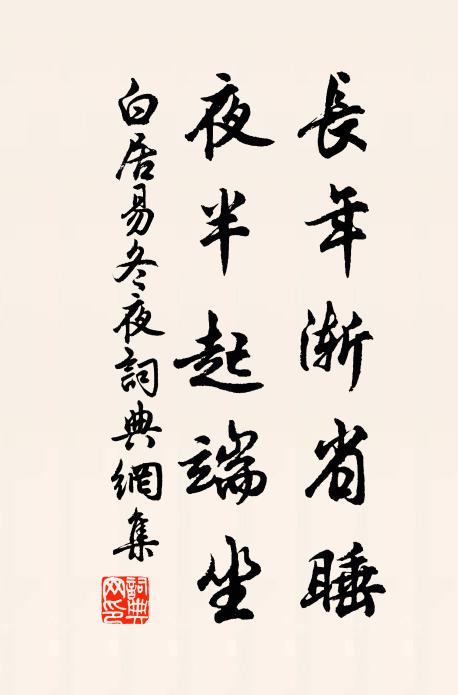 長年漸省睡
夜半起端坐
白居易冬夜詞典網集
詞典
網印